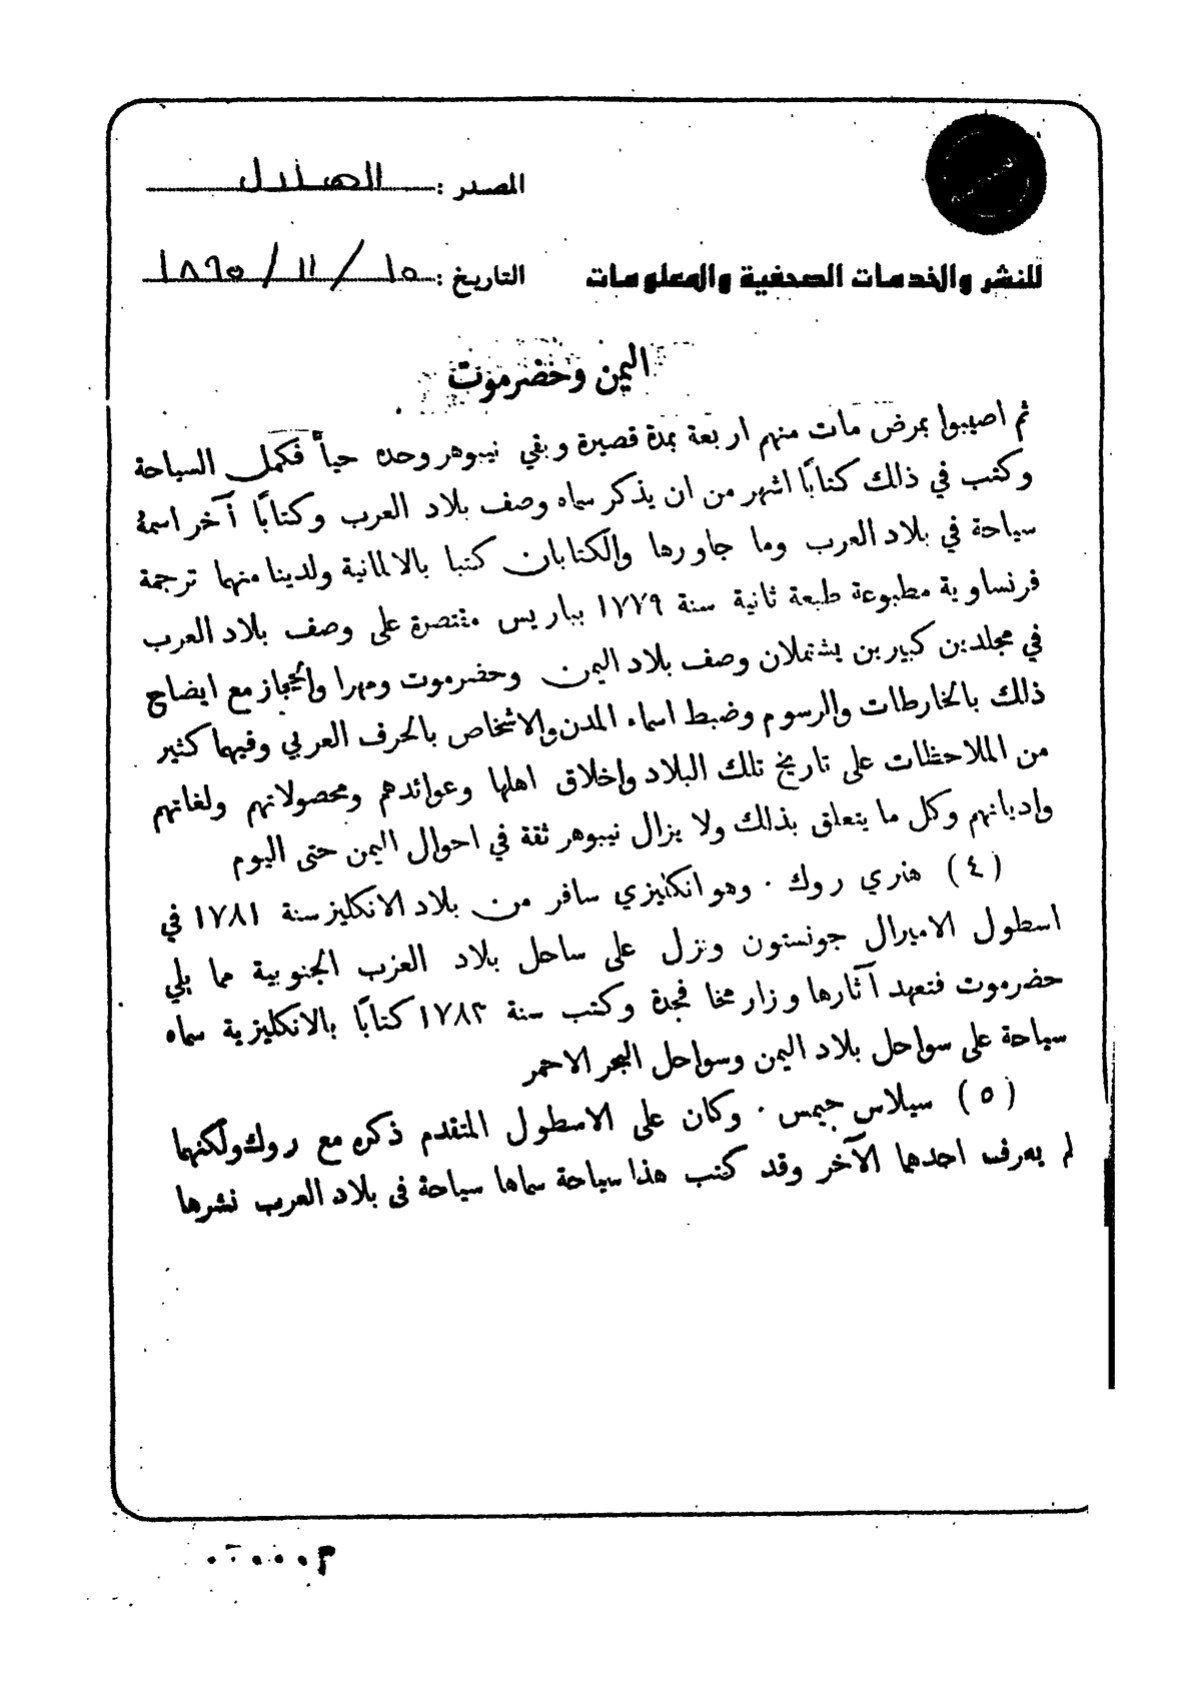 المصدر : الهلال
للنشر والخدمات الصحفية والمعلومات التاريخ : ١٥ / ١١ / ١٨٩٥
اليمن وحضرموت
ثم اصيبوا بمرض مات منهم اربعة بمدة قصيرة وبقي نيبوهر وحده حياً فكمل السياحة
وكتب في ذلك كتابًا اشهر من ان يذكر سماه وصف بلاد العرب وكتابًا آخر اسمهُ
سياحة في بلاد العرب وما جاورها والكتابان كتبا بالالمانية ولدينا منهما ترجمة
فرنساوية مطبوعة طبعة ثانية سنة ١٧٧٩ بباريس مقتصرة على وصف بلاد العرب
في مجلدين كبيرين يشتملان وصف بلاد اليمن وحضرموت ومهرا والحجاز مع ايضاح
ذلك بالخارطات والرسوم وضبط اسماء المدن والاشخاص بالحرف العربي وفيهما كثير
من الملاحظات على تاريخ تلك البلاد واخلاق اهلها وعوائدهم ومحصولاتهم ولغاتهم
واديانهم وكل ما يتعلق بذلك ولا يزال نيبوهر ثقة في احوال اليمن حتى اليوم
(٤) هنري روك . وهو انكليزي سافر من بلاد الانكليز سنة ١٧٨١ في
اسطول الاميرال جونستون ونزل على ساحل بلاد العرب الجنوبية مما يلي
حضرموت فتعهد آثارها وزار مخا فجدة وكتب سنة ١٧٨٣ كتابًا بالانكليزية سماه
سياحة على سواحل بلاد اليمن وسواحل البحر الاحمر
(٥) سيلاس جيمس . وكان على الاسطول المتقدم ذكره مع روك ولكنهما
لم يعرف احدهما الآخر وقد كتب هذا سياحة سماها سياحة في بلاد العرب نشرها